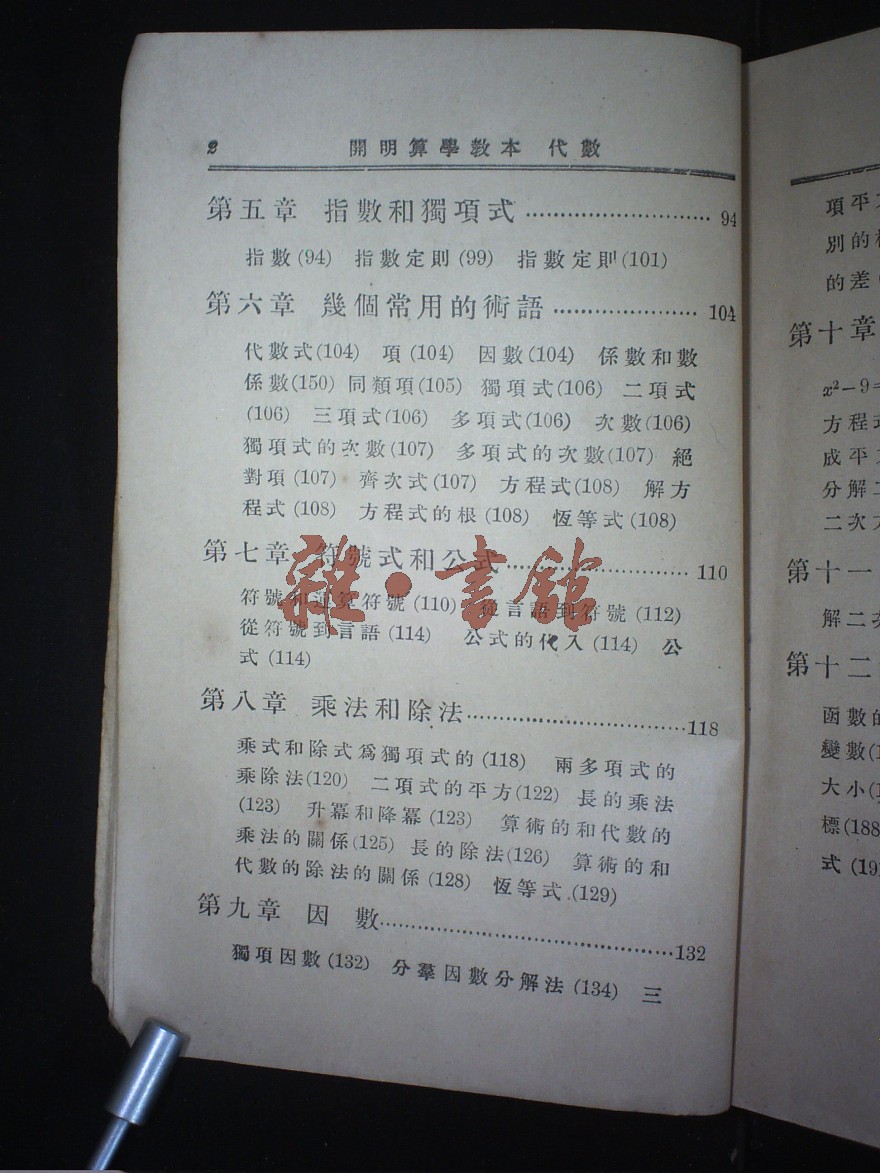 2 開明算學教本 代數
第五章 指數和獨項式 ……………………… 94
指數(94) 指數定則(99) 指數定則(101)
第六章 幾個常用的術語 ………………… 104
代數式(104) 項(104) 因數(104) 係數和數
係數(150) 同類項(105) 獨項式(106) 二項式
(106) 三項式(106) 多項式(106) 次數(106)
獨項式的次數(107) 多項式的次數(107) 絕
對項(107) 齊次式(107) 方程式(108) 解方
程式(108) 方程式的根(108) 恆等式(108)
第七章 符號式和公式 ……………………… 110
符號和逆算符號(110) 從言語到符號(112)
從符號到言語(114) 公式的代入(114) 公
式(114)
第八章 乘法和除法 ………………………… 118
乘式和除式爲獨項式的(118) 兩多項式的
乘除法(120) 二項式的平方(122) 長的乘法
(123) 升冪和降冪(123) 算術的和代數的
乘法的關係(125) 長的除法(126) 算術的和
代數的除法的關係(128) 恆等式(129)
第九章 因 數 …………………………………… 132
獨項因數(132) 分羣因數分解法(134) 三
雜·書館
項平
別的
的差
第十章
x²−9=
方程式
成平
分解二
二次方
第十一
解二
第十二
函數的
變數(1
大小(
標(188
式(19